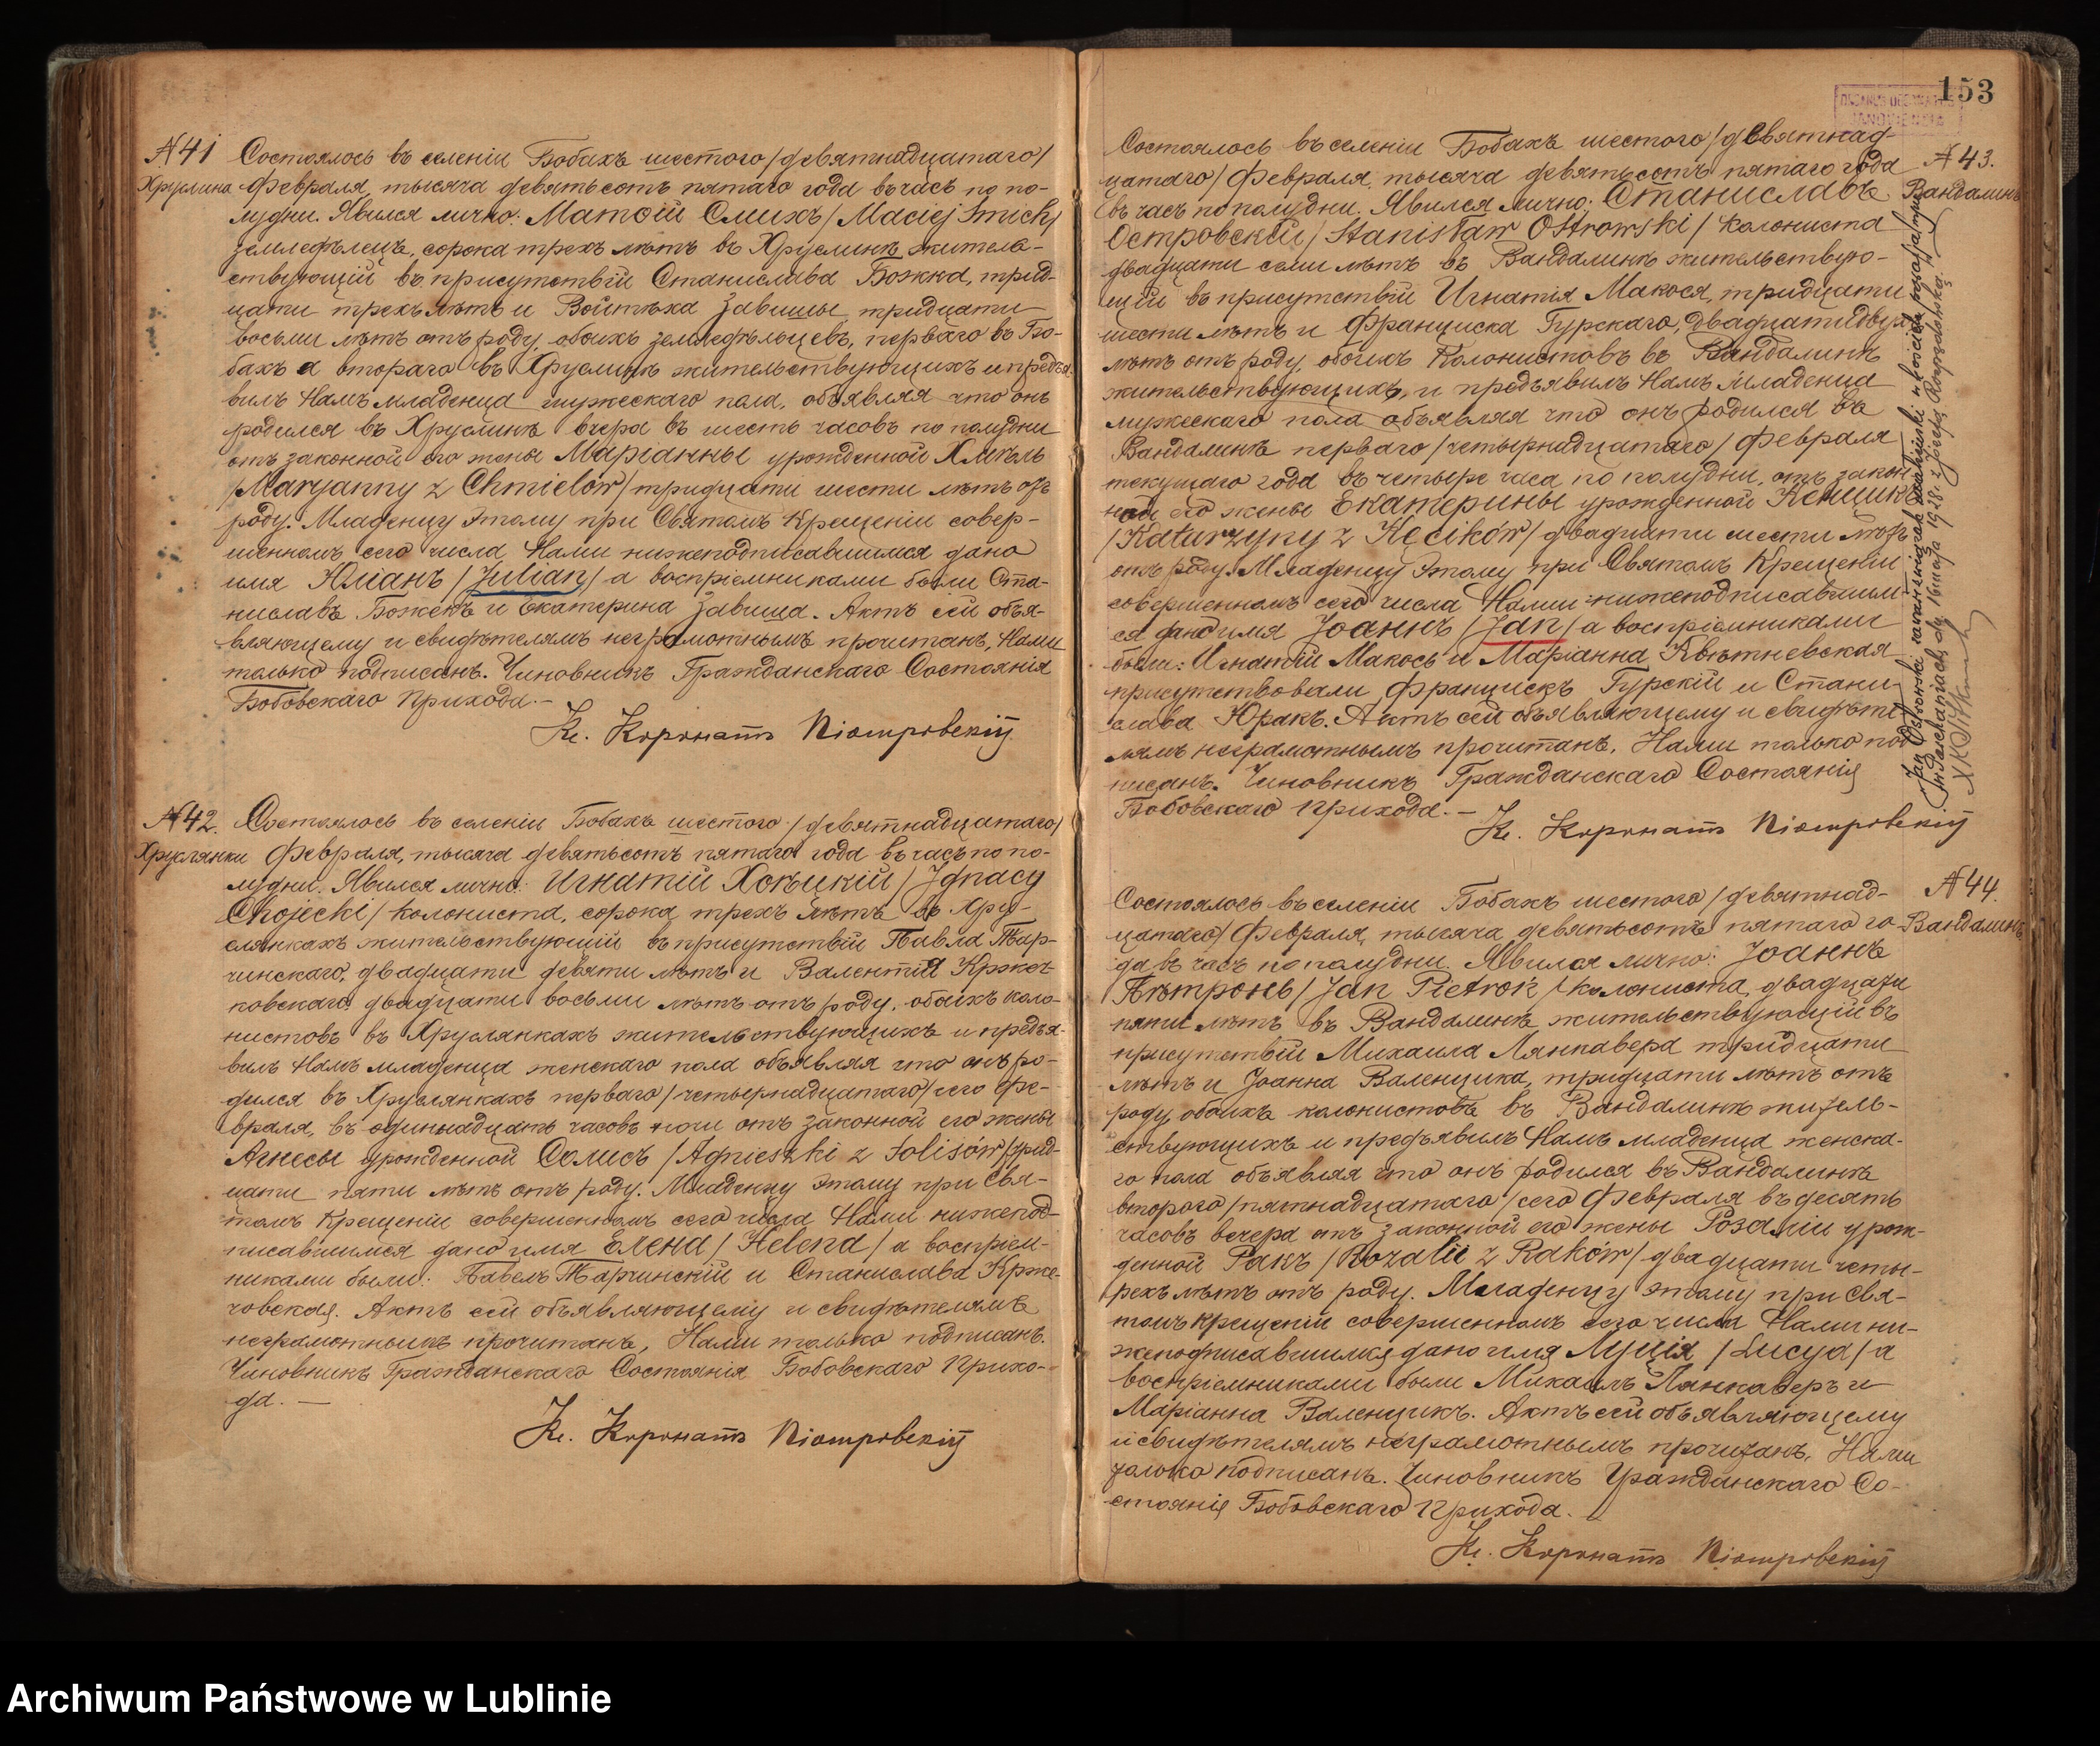 №41
Хруслина
Состоялось въ селеніи Бобахъ шестого /девятнадцатаго/
Февраля, тысяча девятьсотъ пятаго года въ часъ по по-
лудни. Явился лично: Матѳій Смихъ /Maciej Smich/
земледѣлецъ, сорока трехъ лѣтъ въ Хруслинѣ житель-
ствующій въ присутствіи Станислава Божка, трид-
цати трехъ лѣтъ и Войтѣха Завишы тридцати
восьми лѣтъ отъ роду, обоихъ земледѣльцевъ, перваго въ Бо-
бахъ а втораго въ Хруслинѣ жительствующихъ и предъя-
вилъ Намъ младенца мужескаго пола, объявляя что онъ
родился въ Хруслинѣ вчера въ шесть часовъ по полудни
отъ законной его жены Маріанны урожденной Хмѣль
/Maryanny z Chmielów/ тридцати шести лѣтъ отъ
роду. Младенцу этому при Святомъ Крещеніи совер-
шенномъ сего числа Нами нижеподписавшимся дано
имя Юліанъ /Julian/ а воспріемниками были Ста-
ниславъ Божекъ и Екатерина Завиша. Актъ сей объя-
вляющему и свидѣтелямъ неграмотнымъ прочитанъ, Нами
только подписанъ. Чиновникъ Гражданскаго Состоянія
Бобовскаго Прихода. —
Кс. Коронатъ Піотровскій
№42.
Хруслянки
Состоялось въ селеніи Бобахъ шестого /девятнадцатаго/
Февраля, тысяча девятьсотъ пятаго года въ часъ по по-
лудни. Явился лично: Игнатій Хоѣцкій /Ignacy
Chojecki/ колониста, сорока трехъ лѣтъ въ Хру-
слянкахъ жительствующій въ присутствіи Павла Тар-
чинскаго, двадцати девяти лѣтъ и Валентія Кржеч-
ковскаго двадцати восьми лѣтъ отъ роду, обоихъ коло-
нистовъ въ Хруслянкахъ жительствующихъ и предъя-
вилъ Намъ младенца женскаго пола объявляя что онъ ро-
дился въ Хруслянкахъ перваго /четырнадцатаго/ сего Фе-
враля, въ одиннадцать часовъ ночи отъ законной его жены
Агнесы урожденной Солисъ /Agnieszki z Solisów/ трид-
цати пяти лѣтъ отъ роду. Младенцу этому при Свя-
томъ Крещеніи совершенномъ сего числа Нами нижепод-
писавшимся дано имя Елена /Helena/ а воспріем-
никами были: Павелъ Тарчинскій и Станислава Крже-
човская. Актъ сей объявляющему и свидѣтелямъ
неграмотнымъ прочитанъ, Нами только подписанъ.
Чиновникъ Гражданскаго Состоянія Бобовскаго Прихо-
да. —
Кс. Коронатъ Піотровскій
153
№43.
Вандалинъ
Состоялось въ селеніи Бобахъ шестого /девятнад-
цатаго/ Февраля, тысяча девятьсотъ пятаго года
въ часъ по полудни. Явился лично: Станиславъ
Островскій /Stanisław Ostrowski/ колониста
двадцати семи лѣтъ въ Вандалинѣ жительствую-
щій въ присутствіи Игнатія Макося, тридцати
шести лѣтъ и Франциска Гурскаго, двадцати двухъ
лѣтъ отъ роду, обоихъ колонистовъ въ Вандалинѣ
жительствующихъ, и предъявилъ Намъ младенца
мужескаго пола объявляя что онъ родился въ
Вандалинѣ перваго /четырнадцатаго/ Февраля
текущаго года въ четыре часа по полудни, отъ закон-
ной его жены Екатерины урожденной Кенцикъ
/Katarzyny z Kęcików/ двадцати шести лѣтъ
отъ роду. Младенцу этому при Святомъ Крещеніи
совершенномъ сего числа Нами нижеподписавшим-
ся дано имя Іоаннъ /Jan/ а воспріемниками
были: Игнатій Макось и Маріанна Квѣтневская
присутствовали Францискъ Гурскій и Стани-
слава Юракъ. Актъ сей объявляющему и свидѣте-
лямъ неграмотнымъ прочитанъ, Нами только под-
писанъ. Чиновникъ Гражданскаго Состоянія
Бобовскаго Прихода. —
Кс. Коронатъ Піотровскій
Jan Ostrowski zawarł związek małżeński w kościele parafjalnym
№44.
Вандалинъ
Состоялось въ селеніи Бобахъ шестого /девятнад-
цатаго/ Февраля, тысяча девятьсотъ пятаго го-
да въ часъ по полудни. Явился лично: Іоаннъ
Пѣтронь /Jan Pietroń/ колониста, двадцати
пяти лѣтъ въ Вандалинѣ жительствующій въ
присутствіи Михаила Лянкавера тридцати
лѣтъ и Іоанна Валенцика, тридцати лѣтъ отъ
роду, обоихъ колонистовъ въ Вандалинѣ житель-
ствующихъ и предъявилъ Намъ младенца женска-
го пола объявляя что онъ родился въ Вандалинѣ
второго /пятнадцатаго/ сего Февраля въ десять
часовъ вечера отъ законной его жены Розаліи урож-
денной Ракъ /Rozalii z Raków/ двадцати четы-
рехъ лѣтъ отъ роду. Младенцу этому при Свя-
томъ Крещеніи совершенномъ сего числа Нами ни-
жеподписавшимся дано имя Луція /Lucya/ а
воспріемниками были Михаилъ Лянкаверъ и
Маріанна Валенцикъ. Актъ сей объявляющему
и свидѣтелямъ неграмотнымъ прочитанъ, Нами
только подписанъ. Чиновникъ Гражданскаго Со-
стоянія Бобовскаго Прихода.
Кс. Коронатъ Піотровскій
Archiwum Państwowe w Lublinie